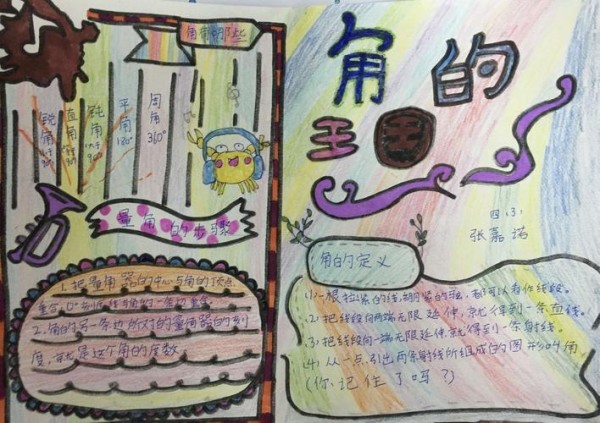 角有哪些
锐角
直角
钝角
平角180°
周角360°
量角的步骤
1.把量角器的中心与角的顶点
重合,0°刻度线与角的一条边重合。
2.角的另一条边所对的量角器的刻
度,就是这个角的度数
角的
王国
四、3
张嘉诺
角的定义
(1)一根拉紧的线,绷紧的弦,都可以看作线段。
(2)把线段向两端无限延伸,就得到一条直线。
(3)把线段向一端无限延伸,就得到一条射线。
(4)从一点引出两条射线所组成的图形叫角
(你记住了吗?)